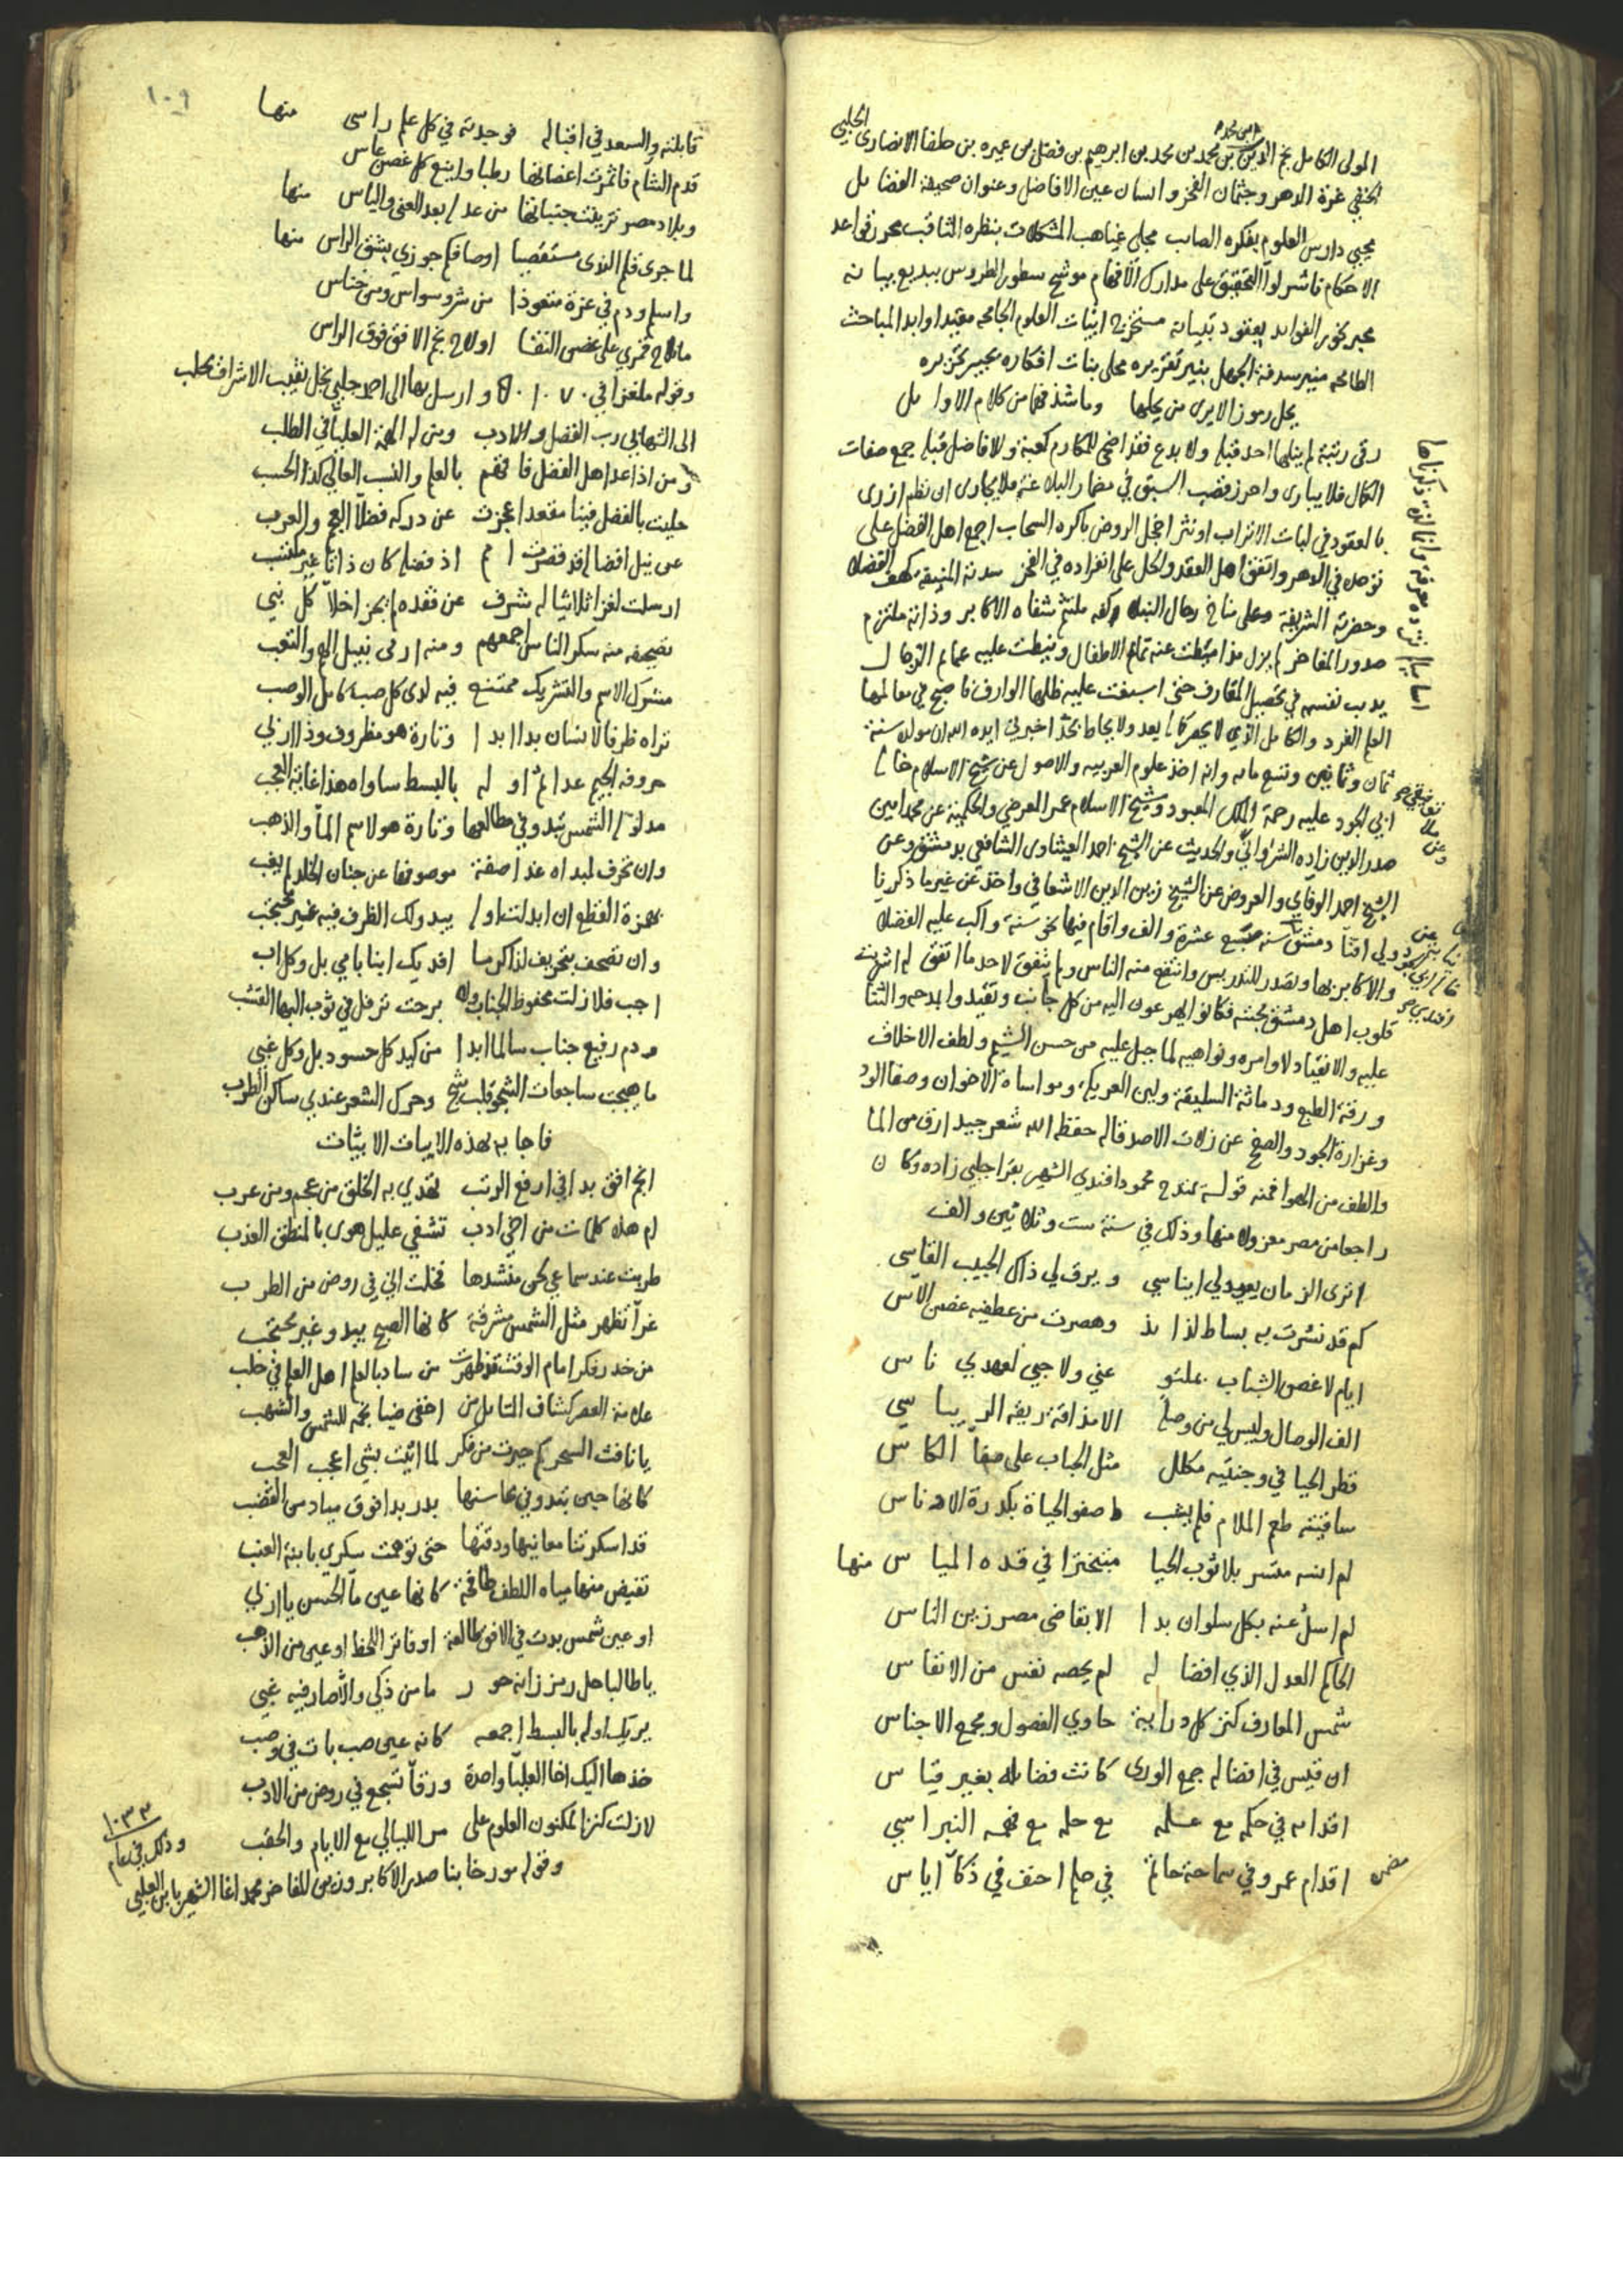 المولى الكامل نجم الدين بن محمد بن محمد بن ابرهيم بن فضل بن عميره بن طغا الانصارى الحلبي
الحنفي غرة الدهر وجثمان الفخر وانسان عين الافاضل وعنوان صحيفة الفضايل
محيي دارس العلوم بفكره الصايب مجلى غياهب المشكلات بنظره الثاقب محرر قواعد
الاحكام ناشر لوآ التحقيق على مدارك الافهام موشح سطور الطروس ببديع بيانه
نحور الفوايد بعقود تبيانه مستخرج ابيات العلوم الجامحه مقيد اوابد المباحث
الطامحه منير سدفة الجهل بنير تقريره محلى بنات افكاره بحبير تحريره
يحل رموزا لا يرى من يحلها وما شذ فيها من كلام الاوايل
رقى رتبة لم ينلها احد قبله ولا بدع فقد اضحى للمكارم كعبة وللافاضل قبله جمع صفات
الكمال فلا يبارى واحرز قصب السبق في مضمار البلاغة فلا يجارى ان نظم ازرى
بالعقود في لبات الاتراب او نثر اخجل الروض باكره السحاب اجمع اهل الفضل على
توحده في الدهر واتفق اهل العقد والحل على انفراده في الفخر سدته المنيفة كهف الفضلا
وحضرته الشريفة مناخ رحال النبلا وكفه ملتثم شفاه الاكابر وذاته ملتزم
صدور المفاخر لم يزل مذ اميطت عنه تمايم الاطفال ونيطت عليه عمايم الرجال
يدب نفسه في تحصيل المعارف حتى اسبغت عليه ظلها الوارف فاصبح في معالمها
العلم الفرد والكامل الذي لا يحصر كماله بعد ولا يحاط بحد اخبرني ايده الله ان مولده سنة
ثمان وثمانين وتسع مايه وانه اخذ علوم العربيه والاصول عن شيخ الاسلام خاله
ابي الجود عليه رحمة الملك المعبود وشيخ الاسلام عمر العرضي والحكمية عن محمد امين
صدر الدين زاده الشرواني والحديث عن الشيخ احمد العيثاوى الشافعي بدمشق وعن
الشيخ احمد الوفاي والعروض عن الشيخ زين الدين الاشعافي واخذ عن غير ما ذكرنا
ولي افتآ دمشق سنة عشرة والف واقام فيها نحو سنة واكب عليه الفضلا
والاكابر بها وتصدر للتدريس وانتفع منه الناس ولم يتفق لاحد ما اتفق له
قلوب اهل دمشق بمحبته فكانوا يهرعون اليه من كل جانب وتقيدوا بمدحه والثنا
عليه والانقياد لاوامره ونواهيه لما جبل عليه من حسن الشيم ولطف الاخلاق
ورقة الطبع ودماثة السليقة ولين العريكه ومواساة الاخوان وصفا الود
وغزارة الجود والصفح عن زلات الاصدقا له حفظه الله شعر جيد ارق من الما
والطف من الهوا فمنه قوله يمدح محمود افندي الشهير بقراجلبي زاده وكان
راجعا من مصر معزولا منها وذلك في سنة ست وثلاثين والف
اترى الزمان يعيد لي ايناسي ويرق لي ذاك الحبيب القاسي
كم قد نشرت به بساط لذايذ وهصرت من عطفيه غصن الآس
ايام لا غصن الشباب بملتو عني ولا حبي لعهدي ناس
الف الوصال وليس لي من وصله الا مذاقة ريقه
قطر الحيا في وجنتيه مكلل مثل الحباب على صفآ الكاس
سافيتنه طعم الملام فلم يشب صفو الحياة بكدرة الادناس
لم انسه متسربلا ثوب الحيا متبخترا في قده المياس منها
لم اسل عنه بكل سلوان بدا الا بقاضى مصر زين الناس
الحاكم العدل الذي افضاله لم يحصه نفس من الانفاس
شمس المعارف كنز كل دراية حاوي الفصول ومجمع الاجناس
ان قيس في افضاله جمع الورى كانت فضايله بغير قياس
اقدامه في حكمه مع علمه مع حلمه مع فهمه النبراسي
اقدام عمرو في سماحة حاتم في حلم احنف في ذكآ اياس
مضمن
١٠٩
قابلته والسعد في اقباله فوجدته في كل علم راسى منها
قدم الشام فاثمرت اغصانها رطبا واينع كل غصن عاس
وبلاد مصر تزينت جنباتها من عدله بعد العنى والياس منها
لما جرى قلم الندى مستقصيا اوصافكم جوزي بشق الراس منها
واسلم ودم في عزة متعوذا من شر وسواس ومن خناس
ما ناح قمري على غصن النقا اولاح نجم الافق فوق الراس
وقوله ملغزا في وارسل بها الى احمد جلبي نجل نقيب الاشراف بحلب
الى الشهابي رب الفضل والادب ومن له الهمة العليآ في الطلب
ومن اذا عد اهل الفضل فاقهم بالعلم والنسب العالي كذا الحسب
حليت بالفضل فينا مقعدا عجزت عن دركه فضلآ العجم والعرب
عن نيل افضاله قد قصرت امم اذ فضله كان ذاتيا غير مكتسب
ارسلت لغزا ثلاثيا له شرف عن فقده لم يجز اخلآ كل نبي
تصحيفه منه سكر الناس اجمعهم ومنه ارمى نبيل الهم والتعب
مشترك الاسم والتشريك ممتنع فيه لدى كل صب كامل الوصب
تراه ظرفا لانسان بدا ابدا وتارة هو مظروف وذا ارني
حروفه الجيم عدا ثم اوله بالبسط ساواه هذا غاية العجب
مدلوله الشمس تبدو في مطالعها وتارة هو لاسم المآ والذهب
وان تحرف لمبداه غدا صفة موصوفها عن جنان الخلد لم يغب
بهمزة القطع ان ابدلت اوله يبدو لك الظرف فيه غير محتجب
وان تصحف بتحريف لذاك رسا افديك ابنا بامي بل وكل اب
اجب فلا زلت محفوظ الجناب ولا برحت ترفل في ثوب البها القشب
ودم رفيع جناب سالما ابدا من كيد كل حسود بل وكل غبي
ما هيجت ساجعات الشجو قلب شج وحرك الشعر عندي ساكن الطرب
فاجابه بهذه الابيات الابيات
انجم افق بدا في ارفع الرتب تهدي به الخلق من عجم ومن عرب
ام هذه كلمات من اخي ادب تشفي عليل هوى بالمنطق العذب
طربت عند سماعي لحن منشدها فخلت اني في روض من الطرب
غرآ تظهر مثل الشمس مشرقة كانها الصبح يبدو غير محتجب
من خدر فكر امام الوقت قد ظهرت من ساد بالعلم اهل العلم في حلب
علامة العصر كشاف التامل من اخفى ضيا نجمه للشمس والشهب
يا نافث السحر كم حيرت من فكر لما اتيت بشي اعجب العجب
كانها حين تبدو في محاسنها بدر بدا فوق مياد من القضب
قد اسكرتنا معانيها ورقتها حتى توهمت سكري بابنة العنب
تفيض منها مياه اللطف طافحة كانها عين مآ الحسن يا اربي
او عين شمس بدت في الافق طالعة او فاتر اللحظ او عين من الذهب
يا طالبا حل رمز زانه حور ما من ذكي والا صار فيه غبي
يريك اوله بالبسط اجمعه كانه عين صب بات في وصب
خذها اليك اخا العليآ واحدة ورقآ تسجع في روض من الادب
لازلت كنزا لمكنون العلوم على مر الليالي مع الايام والحقب
وقوله مورخا بنا صدر الاكابر وزين المفاخر محمد اغا الشهير بابن العلبي
وذلك في عام ١٠٣٣